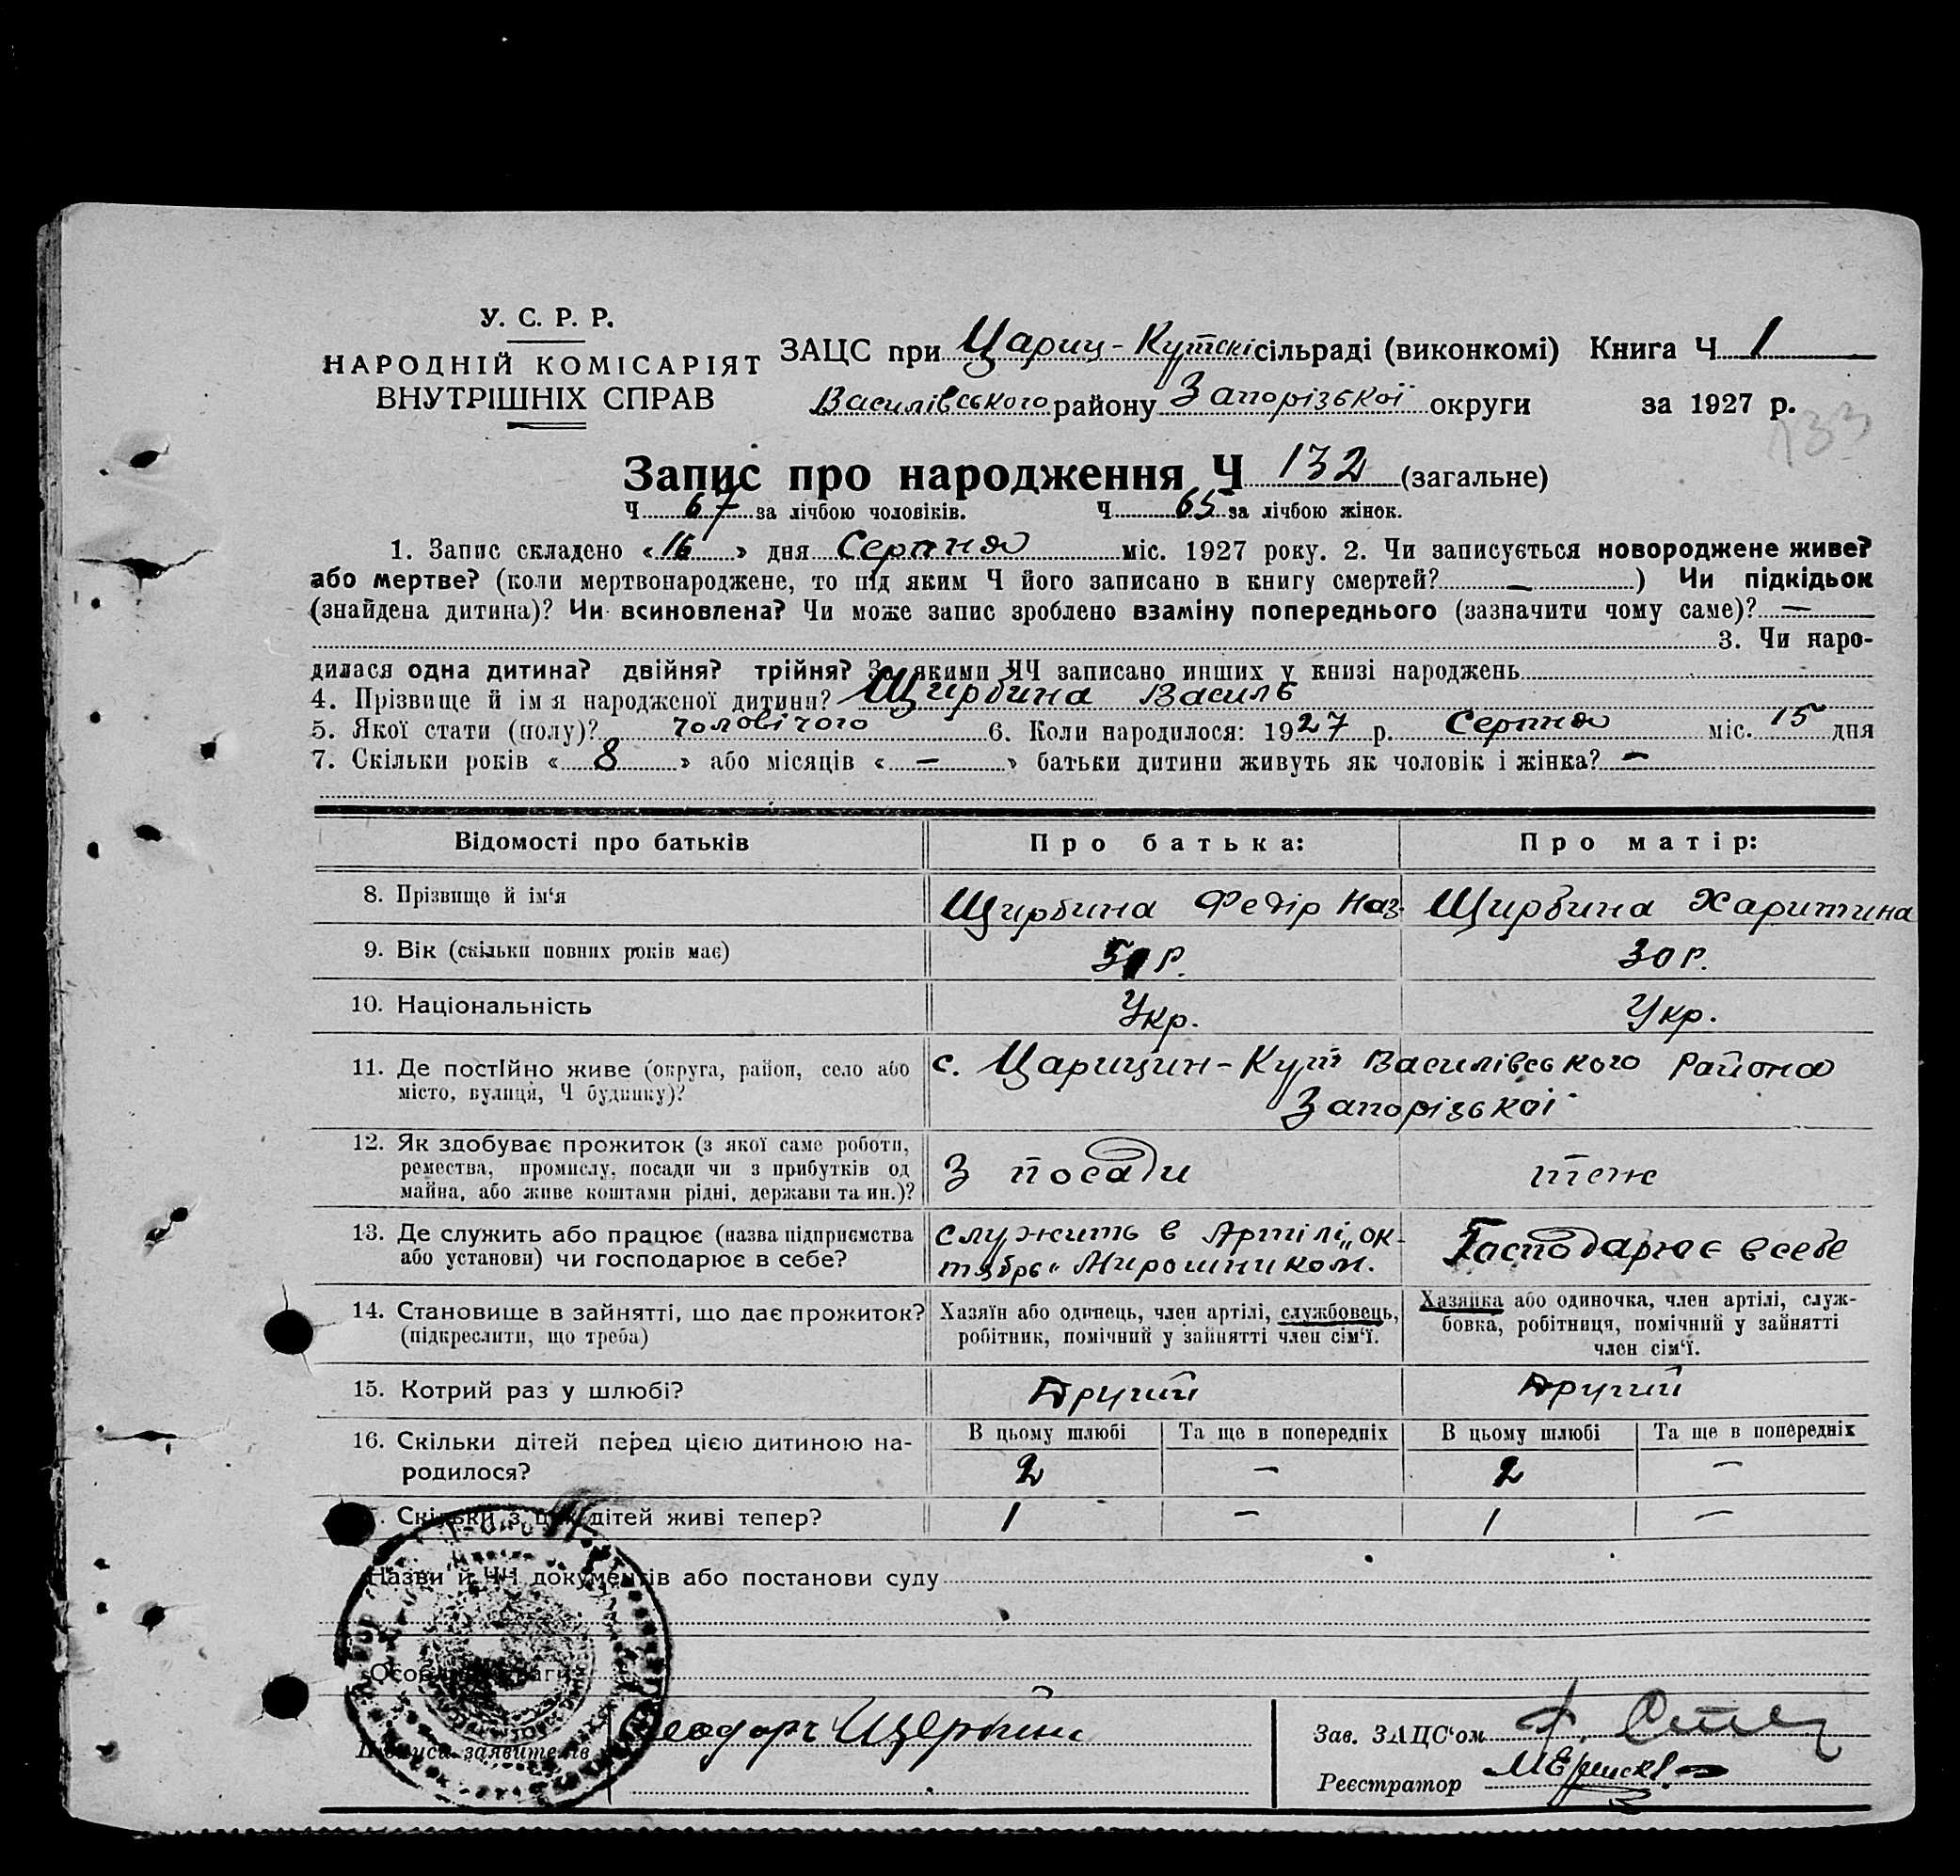 У. С. Р. Р.
НАРОДНІЙ КОМІСАРІЯТ
ВНУТРІШНІХ СПРАВ
ЗАЦС при Цариц-Кутскі сільраді (виконкомі) Книга Ч 1
Василівського району Запорізької округи за 1927 р.
133
Запис про народження Ч 132 (загальне)
Ч 67 за лічбою чоловіків. Ч 65 за лічбою жінок.
1. Запис складено «16» дня Серпня міс. 1927 року. 2. Чи записується новороджене живе?
або мертве? (коли мертвонароджене, то під яким Ч його записано в книгу смертей? —) Чи підкідьок
(знайдена дитина)? Чи всиновлена? Чи може запис зроблено взаміну попереднього (зазначити чому саме)? —
3. Чи наро-
дилася одна дитина? двійня? трійня? За якими ЧЧ записано инших у книзі народжень
4. Прізвище й ім я народженої дитини? Щирбина Василь
5. Якої стати (полу)? чоловічого 6. Коли народилося: 1927 р. Серпня міс. 15 дня
7. Скільки років «8» або місяців «—» батьки дитини живуть як чоловік і жінка? —
Відомості про батьків Про батька: Про матір:
8. Прізвище й ім‘я Щирбина Федір Наз. Щирбина Харитина
9. Вік (скільки повних років має) р. 30 р.
10. Національність Укр. Укр.
11. Де постійно живе (округа, район, село або
місто, вулиця, Ч будинку)?
с. Царицин-Кут Василівського Района
Запорізької
12. Як здобуває прожиток (з якої саме роботи,
ремества, промислу, посади чи з прибутків од
майна, або живе коштами рідні, держави та ин.)?
З посади теж
13. Де служить або працює (назва підприємства
або установи) чи господарює в себе?
служить в Артілі „Ок-
тябрь“ Мирошником.
Господарює в себе
14. Становище в зайнятті, що дає прожиток?
(підкреслити, що треба)
Хазяїн або одинець, член артілі, службовець,
робітник, помічний у зайнятті член сім‘ї.
Хазяйка або одиночка, член артілі, служ-
бовка, робітниця, помічний у зайнятті
член сім‘ї.
15. Котрий раз у шлюбі? Другий Другий
16. Скільки дітей перед цією дитиною на-
родилося?
В цьому шлюбі Та ще в попередніх В цьому шлюбі Та ще в попередніх
2 — 2 —
Скільки з цих дітей живі тепер? 1 — 1 —
Назви й ЧЧ документів або постанови суду
Особливі уваги
Підписи заявителів
Зав. ЗАЦС‘ом
Реєстратор